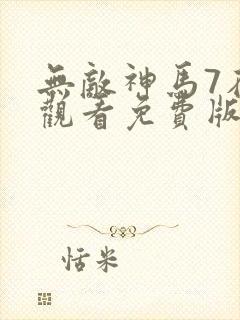 無敵神馬7在
觀看免費版
恬米